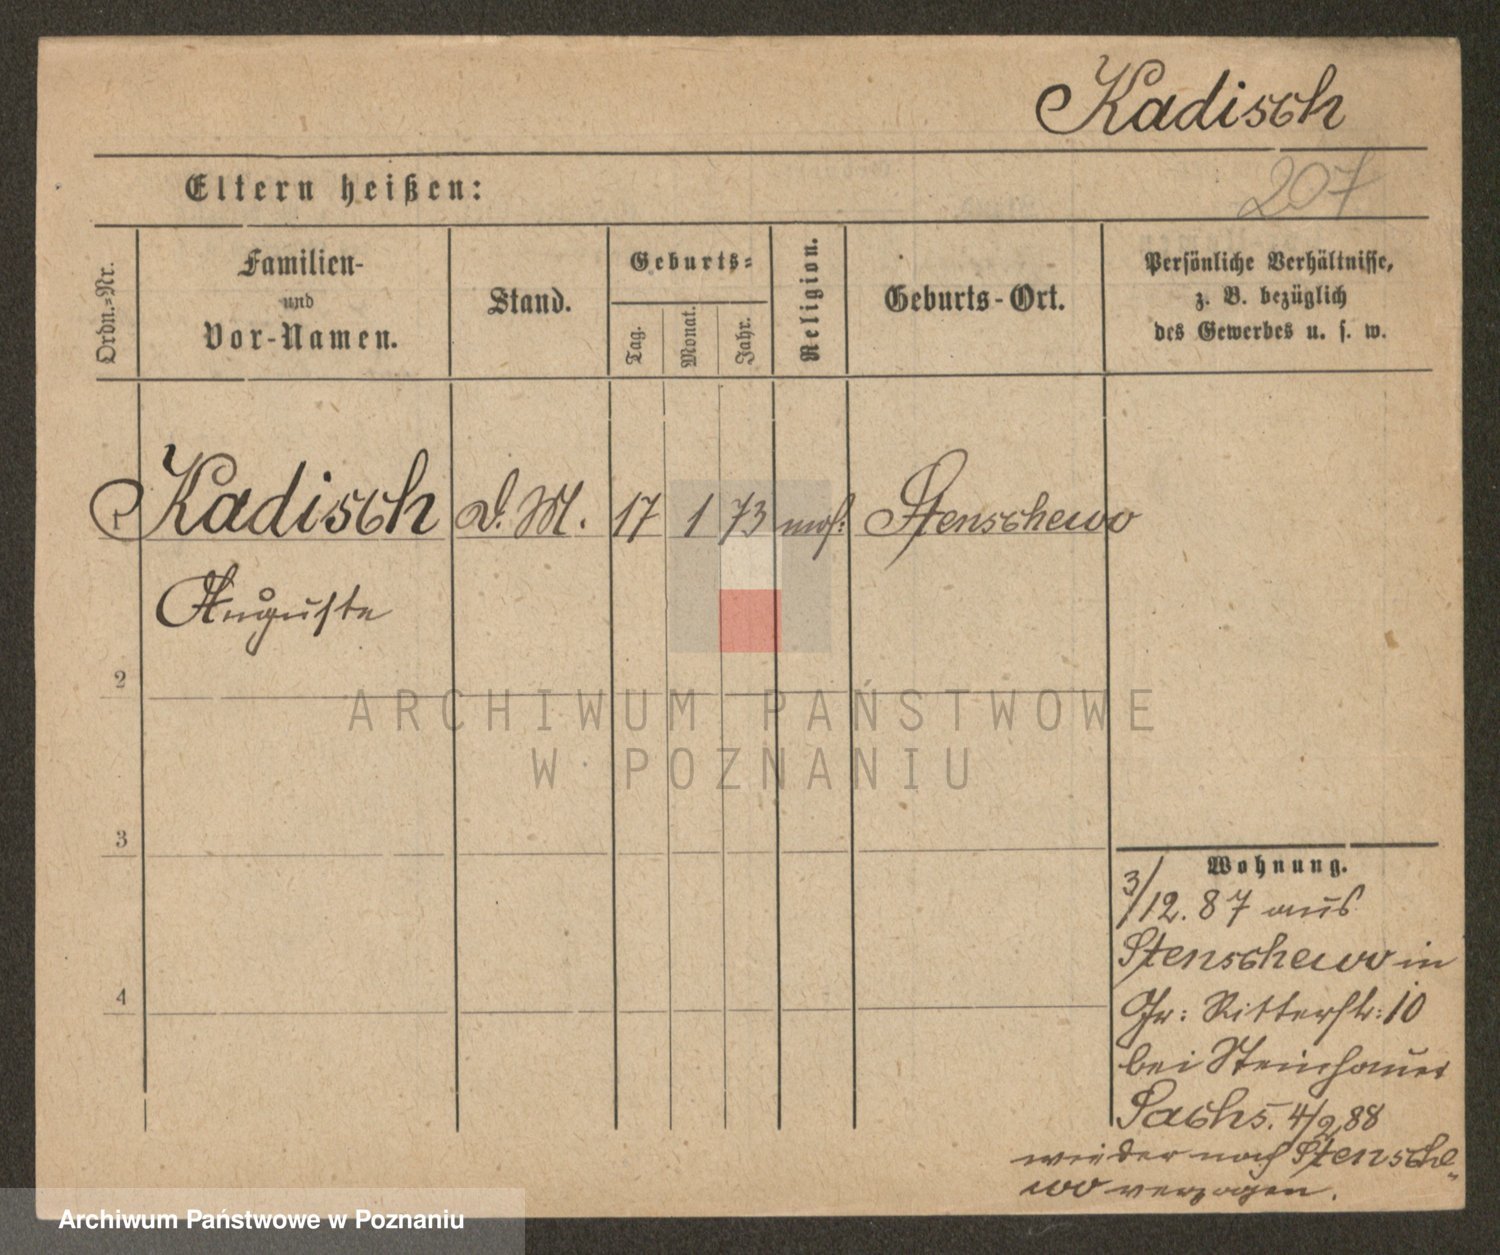 Kadisch
207
Eltern heißen:
Ordn.=Nr.
Familien-
und
Vor-Namen.
Stand.
Geburts=
Tag.
Monat.
Jahr.
Religion.
Geburts-Ort.
Persönliche Verhältnisse,
z. B. bezüglich
des Gewerbes u. s. w.
1 Kadisch D. M. 17 1 73 mos: Stenschewo
Auguste
2
ARCHIWUM PAŃSTWOWE
W POZNANIU
3
Wohnung.
3/12. 87 aus
Stenschewo in
4
Gr: Ritterstr: 10
bei Steinhauer
Sachs. 4/2 88
wieder nach Stensche„
wo verzogen.
Archiwum Państwowe w Poznaniu